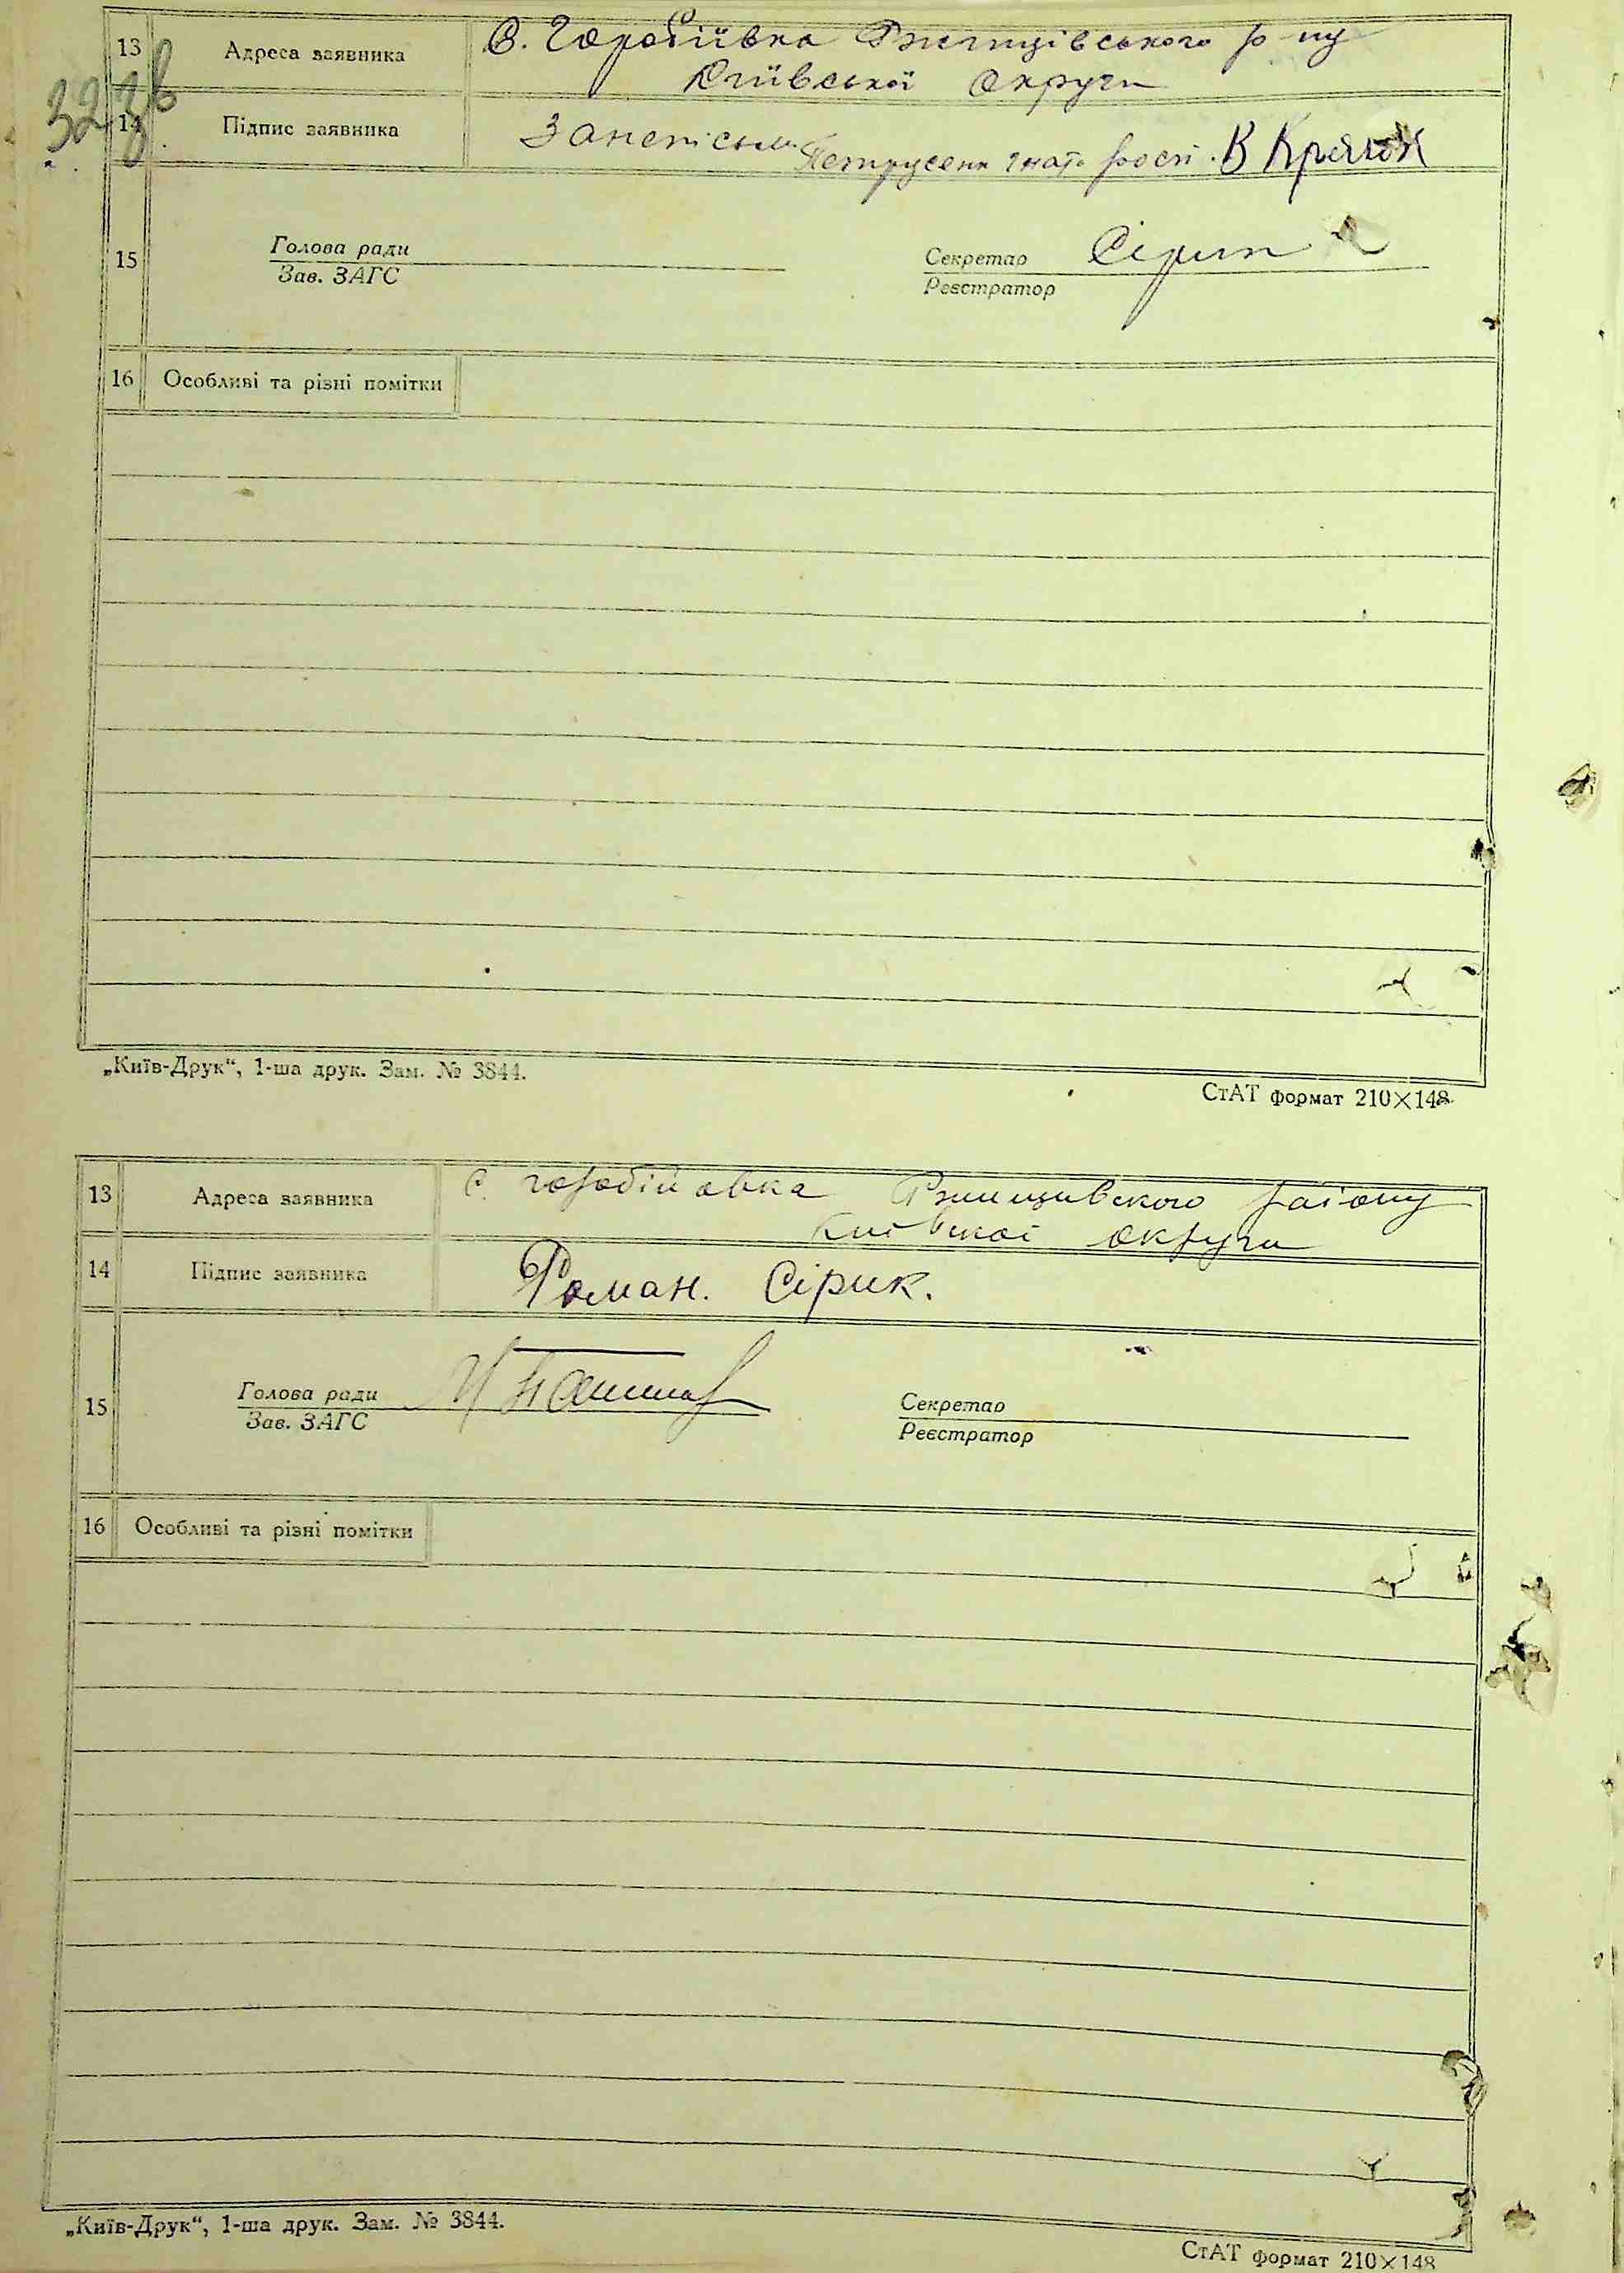 323в
13 Адреса заявника С. Горобіївка Ржищівського р-ну
Київської Округи
14 Підпис заявника За неписьм. Петрусенк Гнат росп. В Крячок
15 Голова ради Секретар Сірик
Зав. ЗАГС Реєстратор
16 Особливі та різні помітки
„Київ-Друк“, 1-ша друк. Зам. № 3844.
СтАТ формат 210×148
13 Адреса заявника с. горобійовка Ржищивского району
київскої округи
14 Підпис заявника Роман. Сірик.
15 Голова ради Секретар
Зав. ЗАГС Реєстратор
16 Особливі та різні помітки
„Київ-Друк“, 1-ша друк. Зам. № 3844.
СтАТ формат 210×148